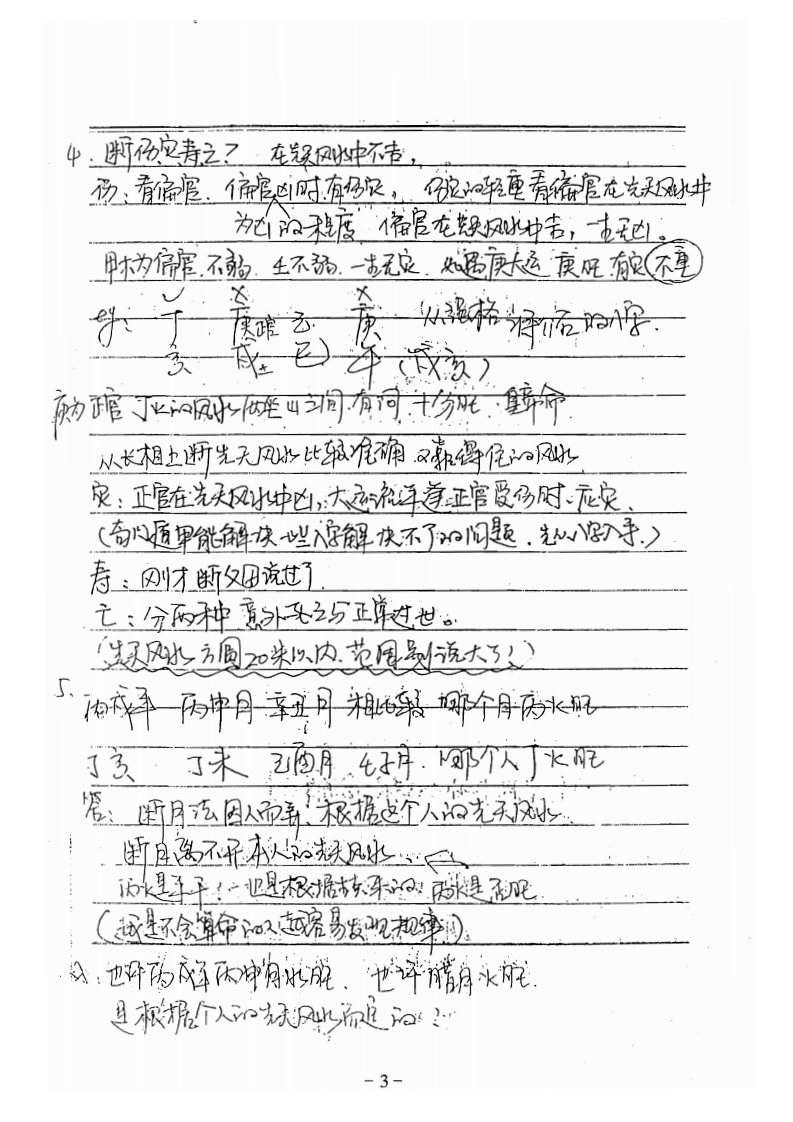 4. 断伤灾寿亡？ 在先天风水中不吉，
伤：看偏官、偏官凶时有伤灾，伤灾的轻重看偏官在先天风水中
为凶的程度 偏官在先天风水中吉，一生无凶。
甲木为偏官 不弱 土不弱 一生无灾 如遇庚大运 庚旺 有灾 不重
✓ × ×
eg： 丁 庚 正官 己 庚 从强格 评价右的八字.
亥 戌土 巳 午 （戌亥）
庚为正官 丁火的风水 两座山之间 有河 十分旺 算命
从长相上断先天风水比较准确 的风水
灾：正官在先天风水中凶，大运流年 正官受伤时，应灾、
（奇门遁甲能解决一些八字解决不了的问题，先从八字入手。）
寿：刚才断父母说过了
亡：分两种 意外死亡与正常过世。
（先天风水 方圆20米以内、范围别说大了！）
5、 丙戌年 丙申月 辛丑月 相比较 哪个月丙火旺
丁亥 丁未 己酉月 壬子月 哪个人丁火旺
答： 断月法因人而异、根据这个人的先天风水
断月离不开本人的先天风水
丙火是年干！一也是根据 来的！丙火是否旺
（越是不会算命的人越容易发现规律！）
也许丙戌年丙申月水旺、 也许腊月火旺.
是根据个人的先天风水而定的！
- 3 -